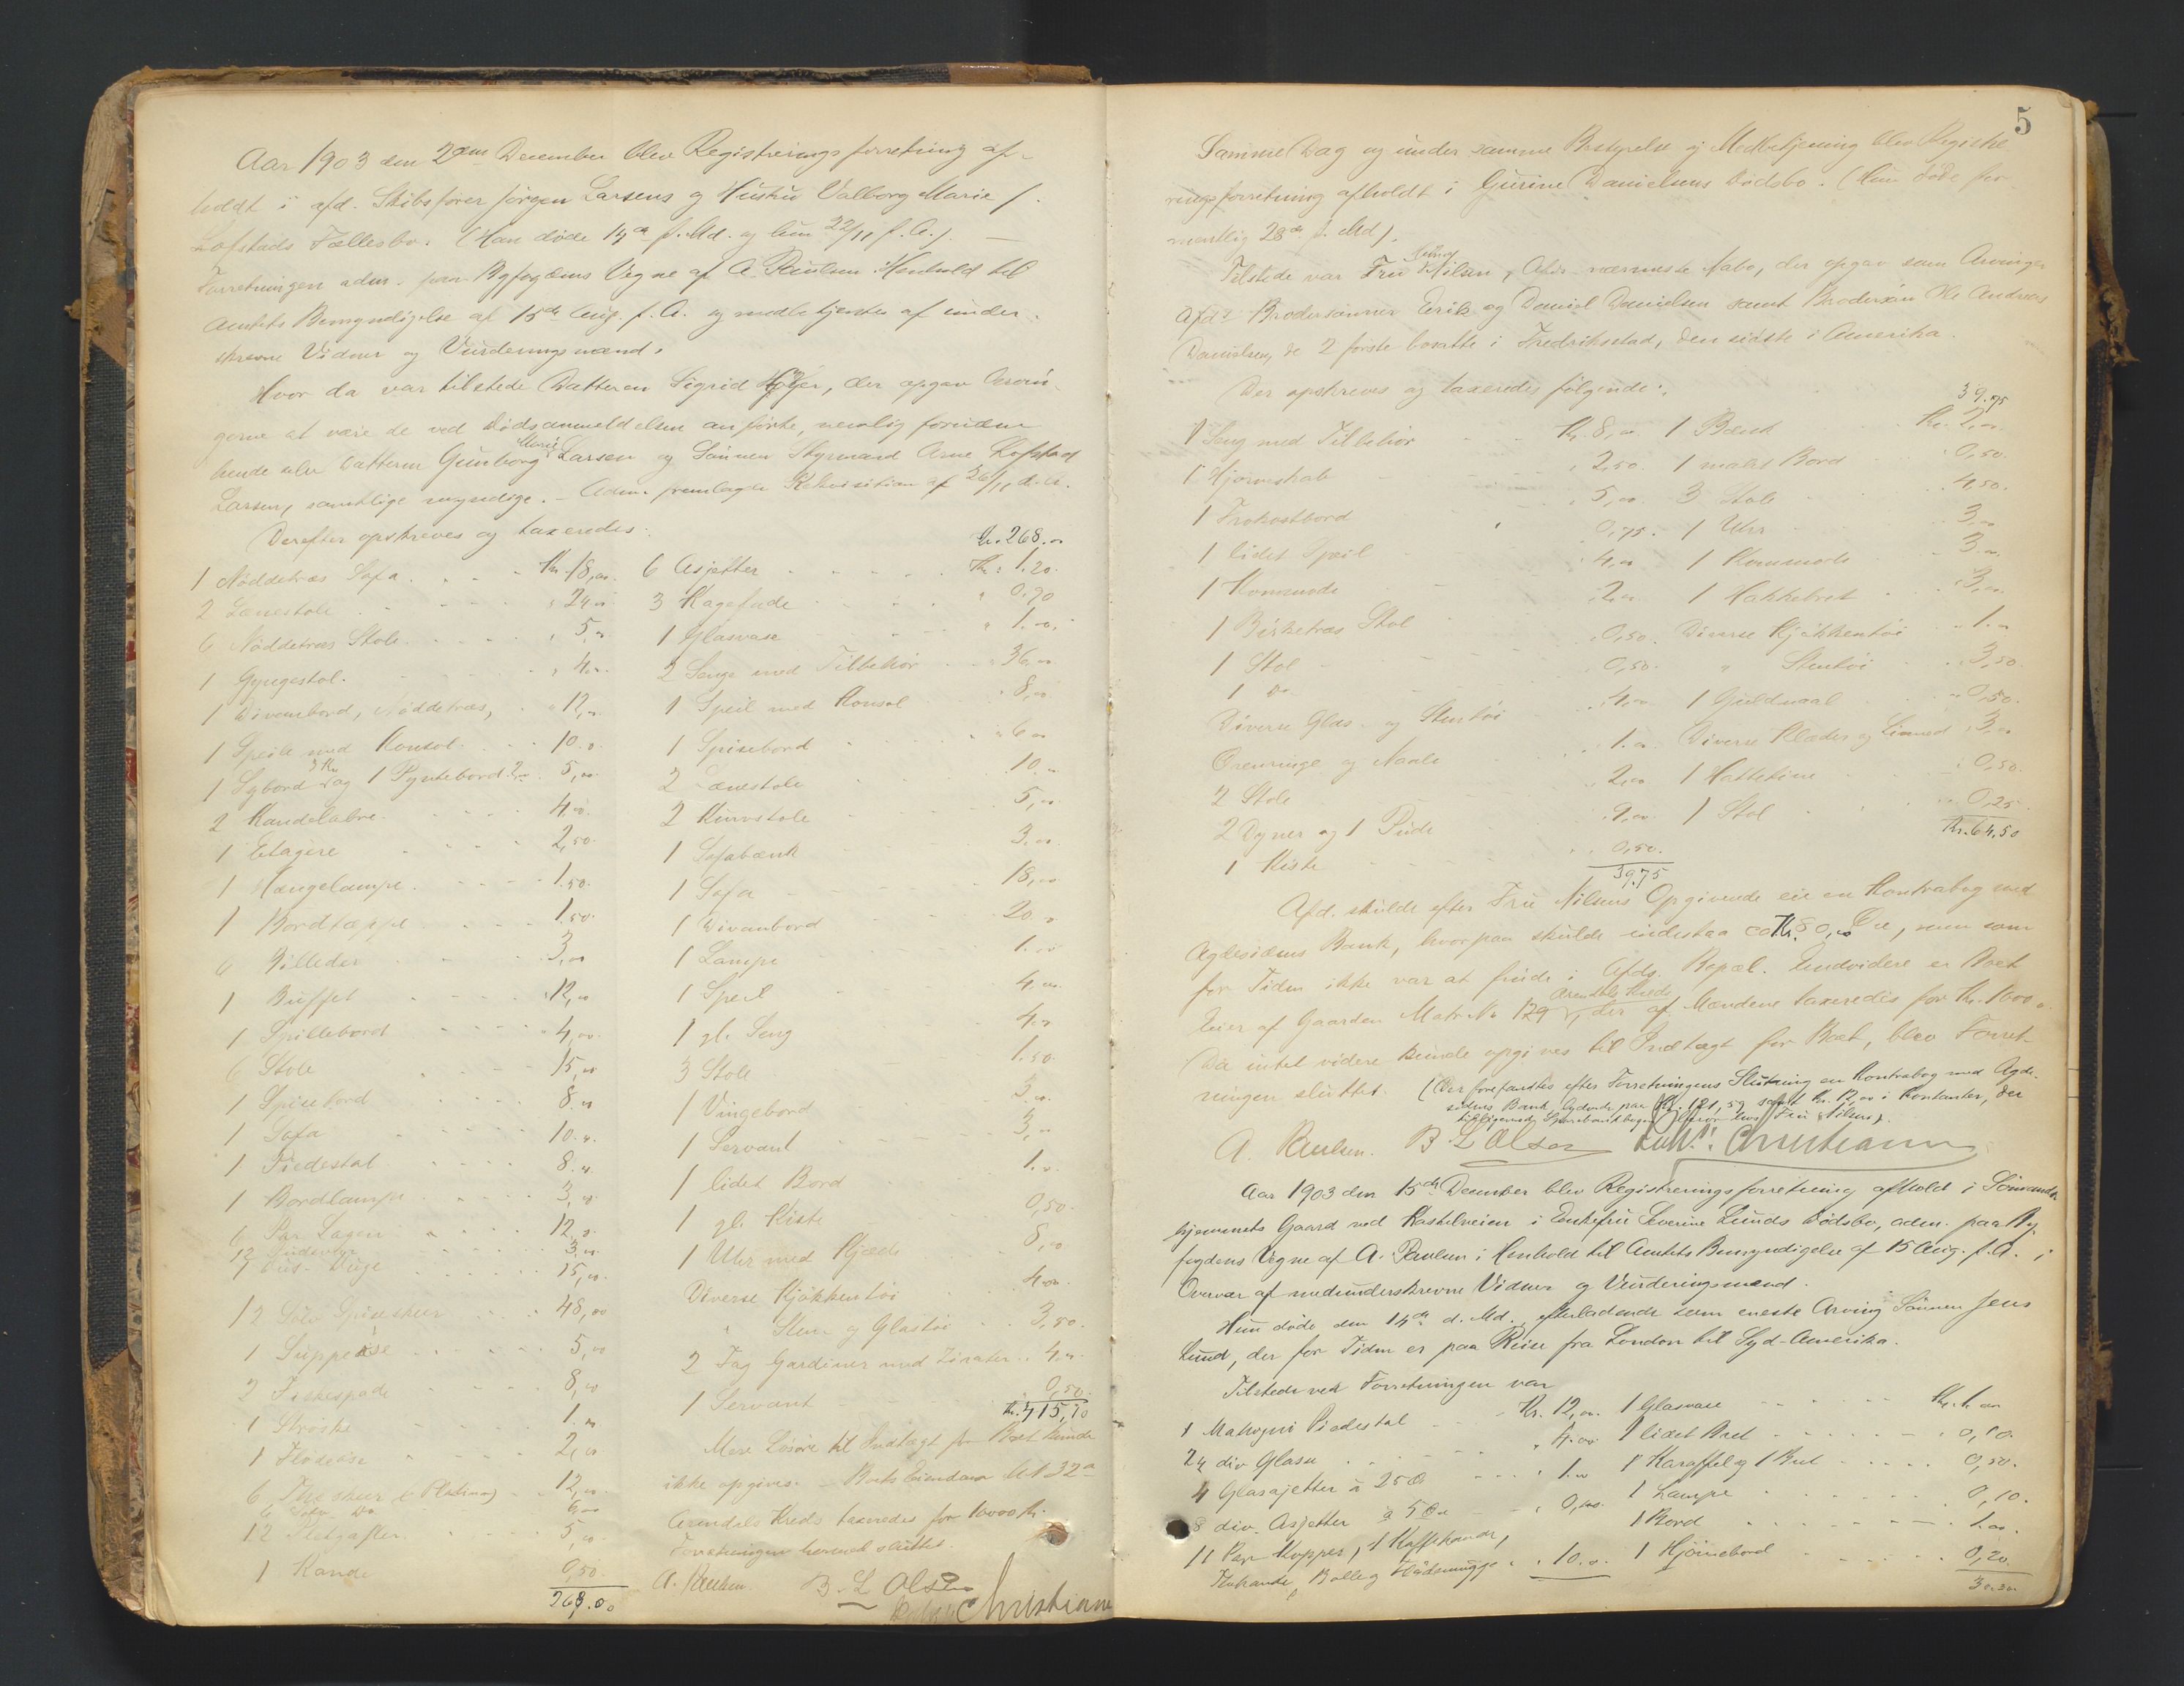 Aar 1903 den 2den December blev Registreringsforretning af-
holdt i afd. Skibsfører Jørgen Larsens og Hustru Valborg Marie f.
Lofstads Fællesbo. (Han døde f. Md. og hun 22/11 f. A.). —
Forretningen adm. paa Byfogdens Vegne af A. Paulsen i Henhold til
Amtets Bemyndigelse af 15de Aug. f. A. og medbetjentes af under-
skrevne Vidner og Vurderingsmænd.
Hvor da var tilstede Datteren Sigrid, der opgav Arvin-
gerne at være de ved Dødsanmeldelsen anførte, nemlig foruden
hende selv Datteren Gunborg Marie Larsen og Sønnen Styrmand Arne Lofstad
Larsen, samtlige myndige. — Adm. fremlagde Rekvisition af 26/11 d. A.
Derefter opskreves og taxeredes:
1 Nøddetræs Sofa Kr. 18,00
2 Lænestole 24,00
6 Nøddetræs Stole 5,00
1 Gyngestol 4,00
1 Divanbord, Nøddetræs, 12,00
1 Speil med Konsol 10.00
1 Sybord 3 Kr og 1 Pyntebord 2,00 5,00
2 Kandelabre 4,00
1 Etagere 2,50
1 Hængelampe 1.50
1 Bordtæppe 1,50
6 Billeder 3,00
1 Buffet 12,00
1 Spillebord 4,00
6 Stole 15,00
1 Spisebord 8.00
1 Sofa 10.00
1 Piedestal 8.00
1 Bordlampe 3,00
6 Par Lagen 12,00
12 Pudevar 3,00
15,00
12 Sølv Spiseskeer 48,00
1 Suppeøse 5,00
2 Fiskespade 8,00
1 Strøske 1.00
1 Flødeøse 2,00
6 Theskeer (Pletmus) 12,00
6 Sølv Do 6,00
12 Pletgafler 5,00
1 Kande 0,50
268.00
Kr. 268.00
6 Asjetter Kr. 1.20
3 Kagefade 0,70
1 Glasvase 1.00
2 Senge med Tilbehør 36,00
1 Speil med Konsol 8,00
1 Spisebord 6,00
2 Lænestole 10.00
2 Kurvstole 5,00
1 Sofabænk 3.00
1 Sofa 18,00
1 Divanbord 20,00
1 Lampe 1.00
1 Speil 4,00
1 gl. Seng 4,00
3 Stole 1.50
1 Vingebord 3,00
1 Servant 3,00
1 lidet Bord 1.00
1 gl. Kiste 0,50
1 Uhr med Kjæde 8,00
Diverse Kjøkkentøi 4,00
" Sten og Glastøi 3,50
2 Fag Gardiner med Zirater 4,00
1 Servant 0,50
Kr. 415,10
Mere Løsøre til Indtægt for Boet kunde
ikke opgives. — Boets Eiendom M 132a
Arendals Kreds taxeredes for 10000 Kr.
Forretningen hermed sluttet.
A. Paulsen. B. L Olsen Christiansen
5
Samme Dag og under samme Bestyrelse og Medbetjening blev Registre-
ringsforretning afholdt i Gurine Danielsens Dødsbo. (Hun døde for-
mentlig 28de f. Md).
Tilstede var Fru Nilsen, Afd.s nærmeste Nabo, der opgav som Arvinger
Afd.s Brodersønner Erik og Daniel Danielsen samt Brodersøn Ole Andreas
Danielsen, de 2 første bosatte i Fredriksstad, den sidste i Amerika.
Der opskreves og taxeredes følgende:
1 Seng med Tilbehør Kr. 8,00
1 Hjørneskab 2,50
1 Frokostbord 5,00
1 lidet Speil 0,75
1 Kommode 4,00
1 Birketræs Stol 2,00
1 Stol 0,50
1 Do 0,50
Diverse Glas- og Stentøi 4,00
Ørenringe og Naale 1.00
2 Stole 2,00
2 Dyner og 1 Pude 9,00
1 Kiste 0,50
39,75
39.75
1 Bænk Kr. 2,00
1 malet Bord 0,50
3 Stole 4,50
1 Uhr 3,00
1 Kommode 3,00
1 Hakkebret 3,00
Diverse Kjøkkentøi 1.00
" Stentøi 3,50
1 Guldnaal 0,50
Diverse Klæder og Linned 3,00
1 Hattetine 0,50
1 Stol 0,25
Kr. 64.50
Afd. skulde efter Fru Nilsens Opgivende eie en Kontrabog med
Agdesidens Bank, hvorpaa skulde indestaa ca Kr. 80,00, som
for Tiden ikke var at finde i Afds. Bopæl. Endvidere er Boet
Eier af Gaarden Matr. No 129 Arendals Kreds, der af Mændene taxeredes for Kr. 1600,00
Da intet videre kunde opgives til Indtægt for Boet, blev Forret-
ningen sluttet. (Der forefandtes efter Forretningens Slutning en Kontrabog med Agde-
sidens Bank, lydende paa Kr. 121,59 samt Kr. 12,00 i Kontanter, der
tilligemed Sparebankbogen beror hos Fru Nilsen).
A. Paulsen. B L Olsen Christiansen
Aar 1903 den 15de December blev Registreringsforretning afholdt i Sømands-
hjemmets Gaard ved Kastelveien i Enkefru Severine Lunds Dødsbo, adm. paa By-
fogdens Vegne af A. Paulsen i Henhold til Amtets Bemyndigelse af 15 Aug. f. A. i
Overvær af medunderskrevne Vidner og Vurderingsmænd.
Hun døde den 14de d. Md., efterladende som eneste Arving Sønnen Jens
Lund, der for Tiden er paa Reise fra London til Syd-Amerika.
Tilstede ved Forretningen var
1 Mahogni Piedestal Kr. 12,00
24 div Glasse 4.00
4 Glasasjetter à 25 Ø 1.00
8 div. Asjetter à 5 Øre 0,40
11 Par Kopper, 1 Kaffekande,
Thekande, Bolle og Flødemugge 10.00
1 Glasvase Kr. 1.00
1 lidet Bret 0,10
1 Karaffel og 1 Bret 0,50
1 Lampe 0,10
1 Bord 1.00
1 Hjørnebord 0,20